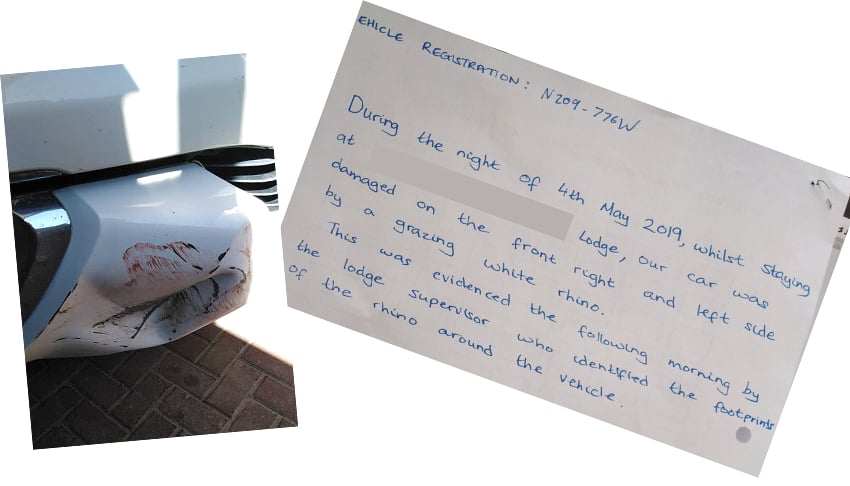 EHICLE REGISTRATION: N209-776W
During the night of 4th May 2019, whilst staying
at Lodge, our car was
damaged on the front right and left side
by a grazing white rhino.
This was evidenced the following morning by
the lodge supervisor who identified the footprints
of the rhino around the vehicle.